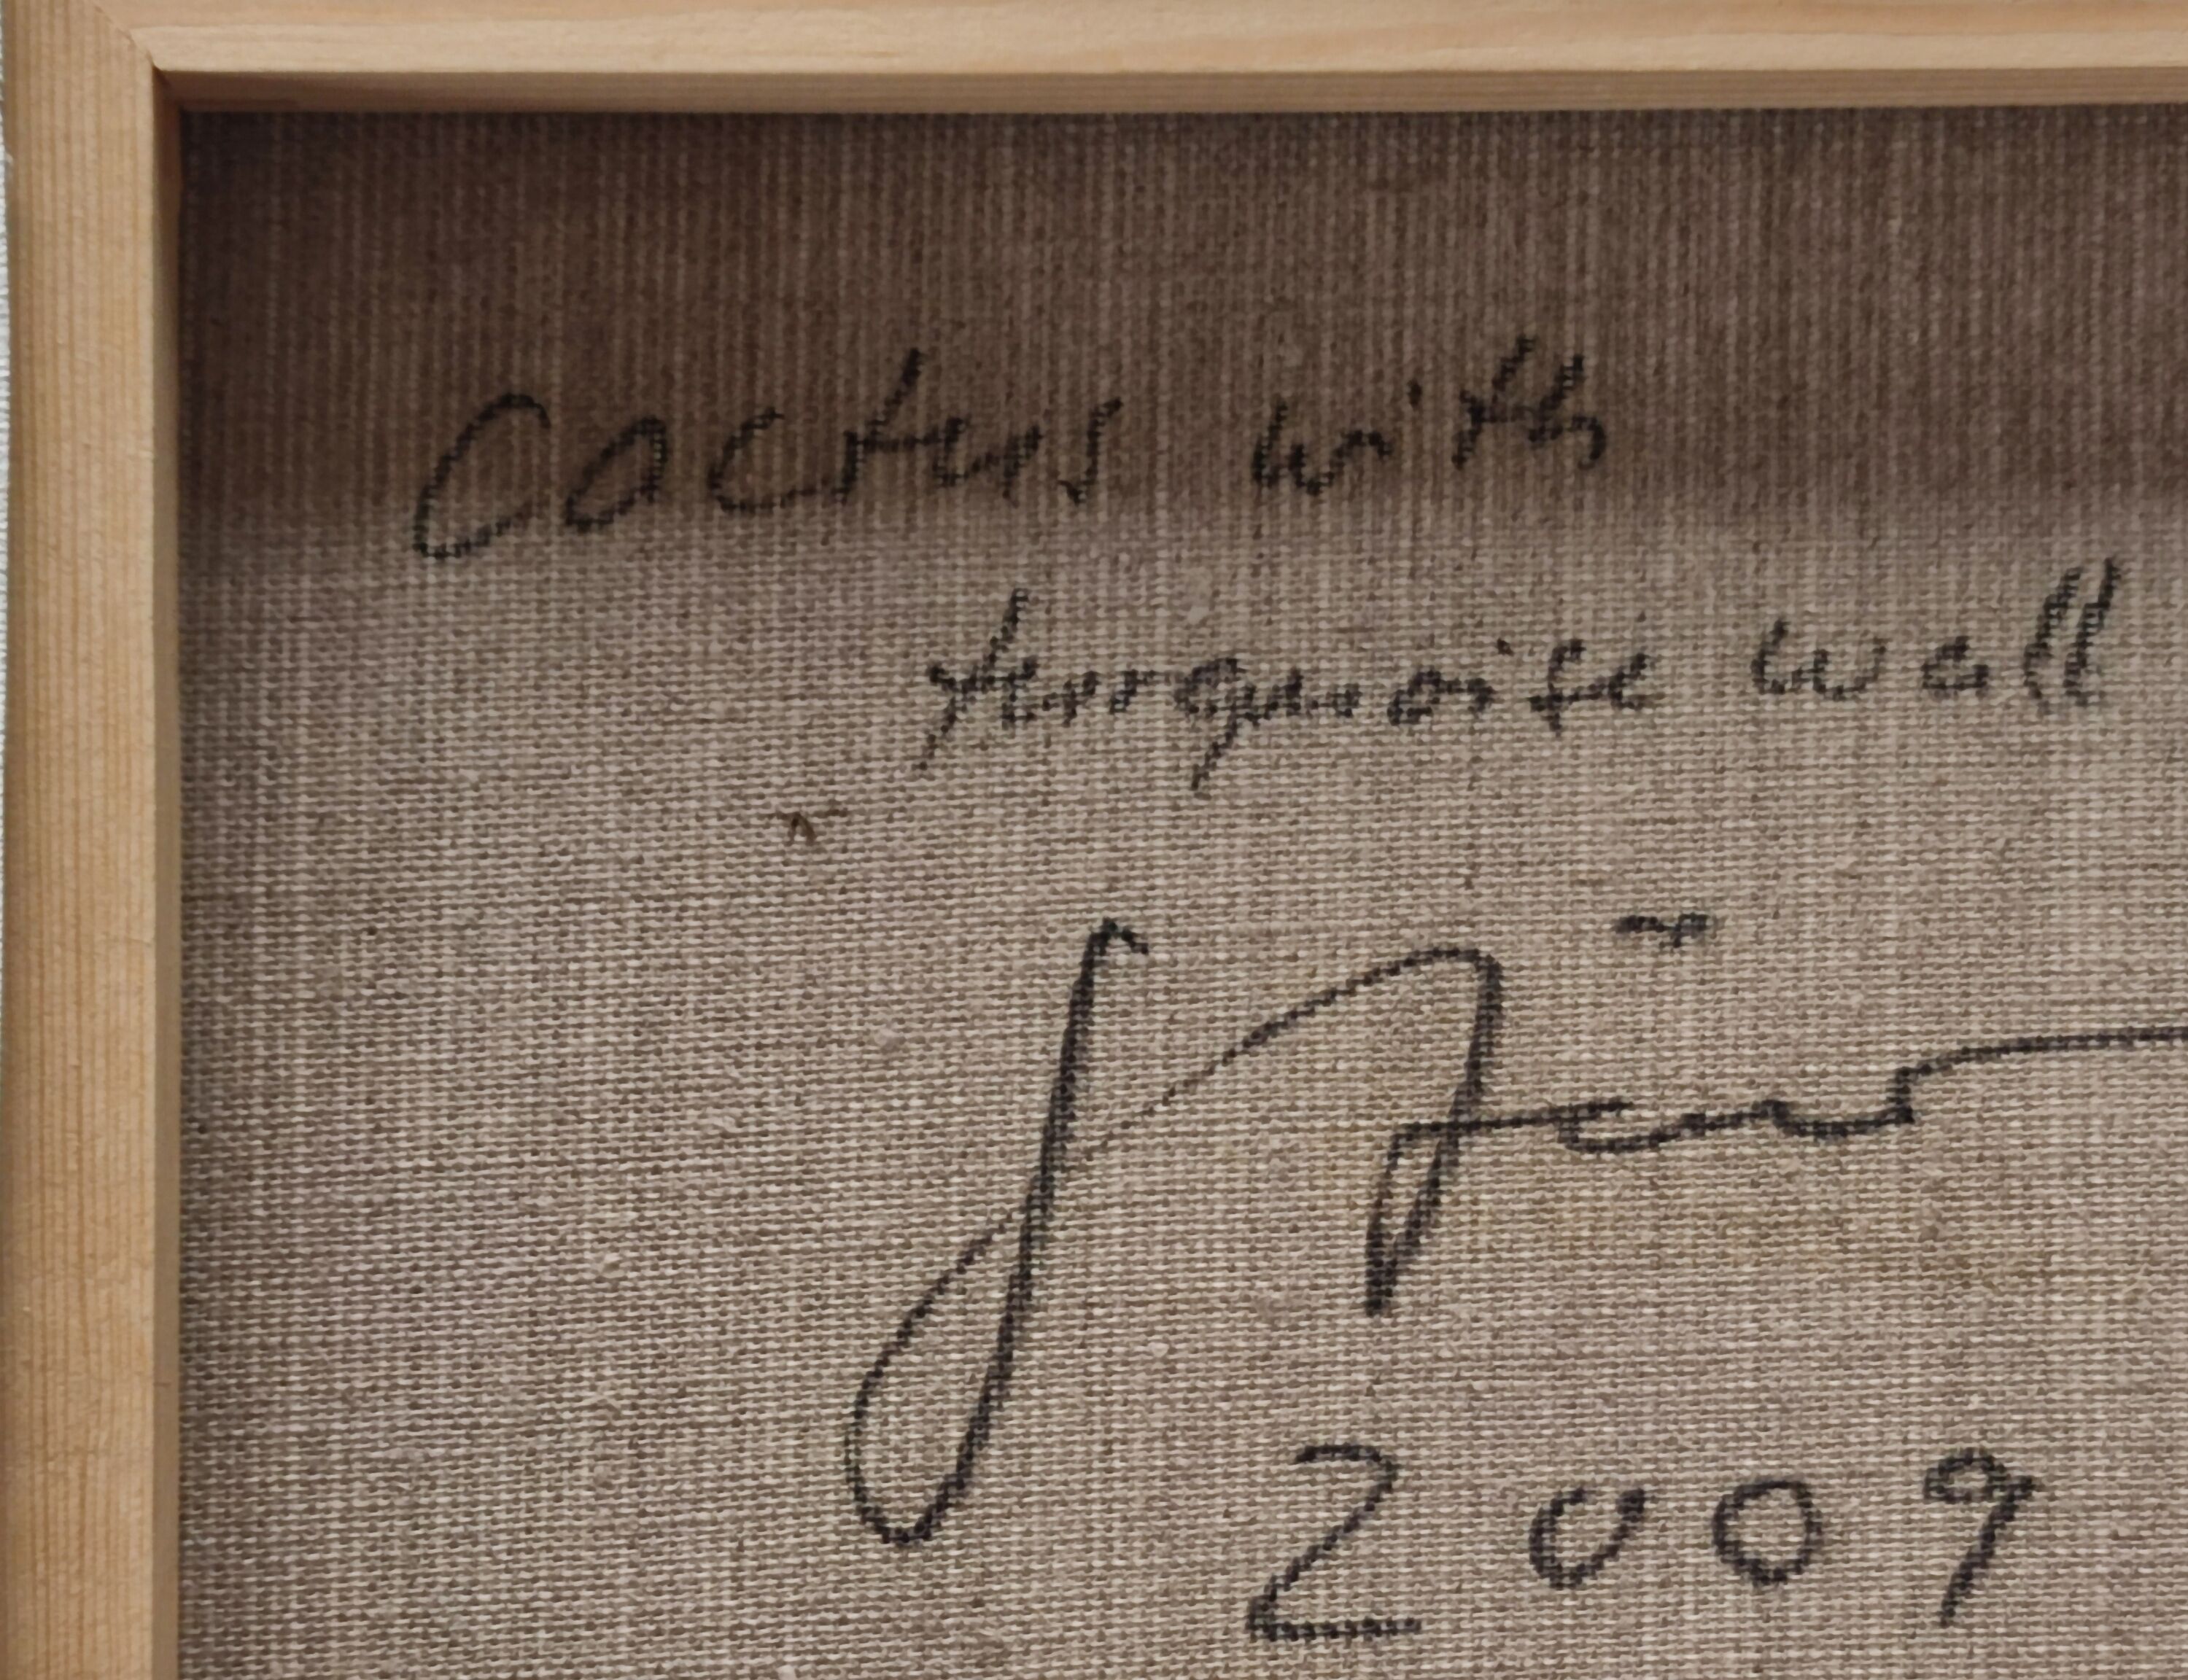 cactus with
turquoise wall
2009